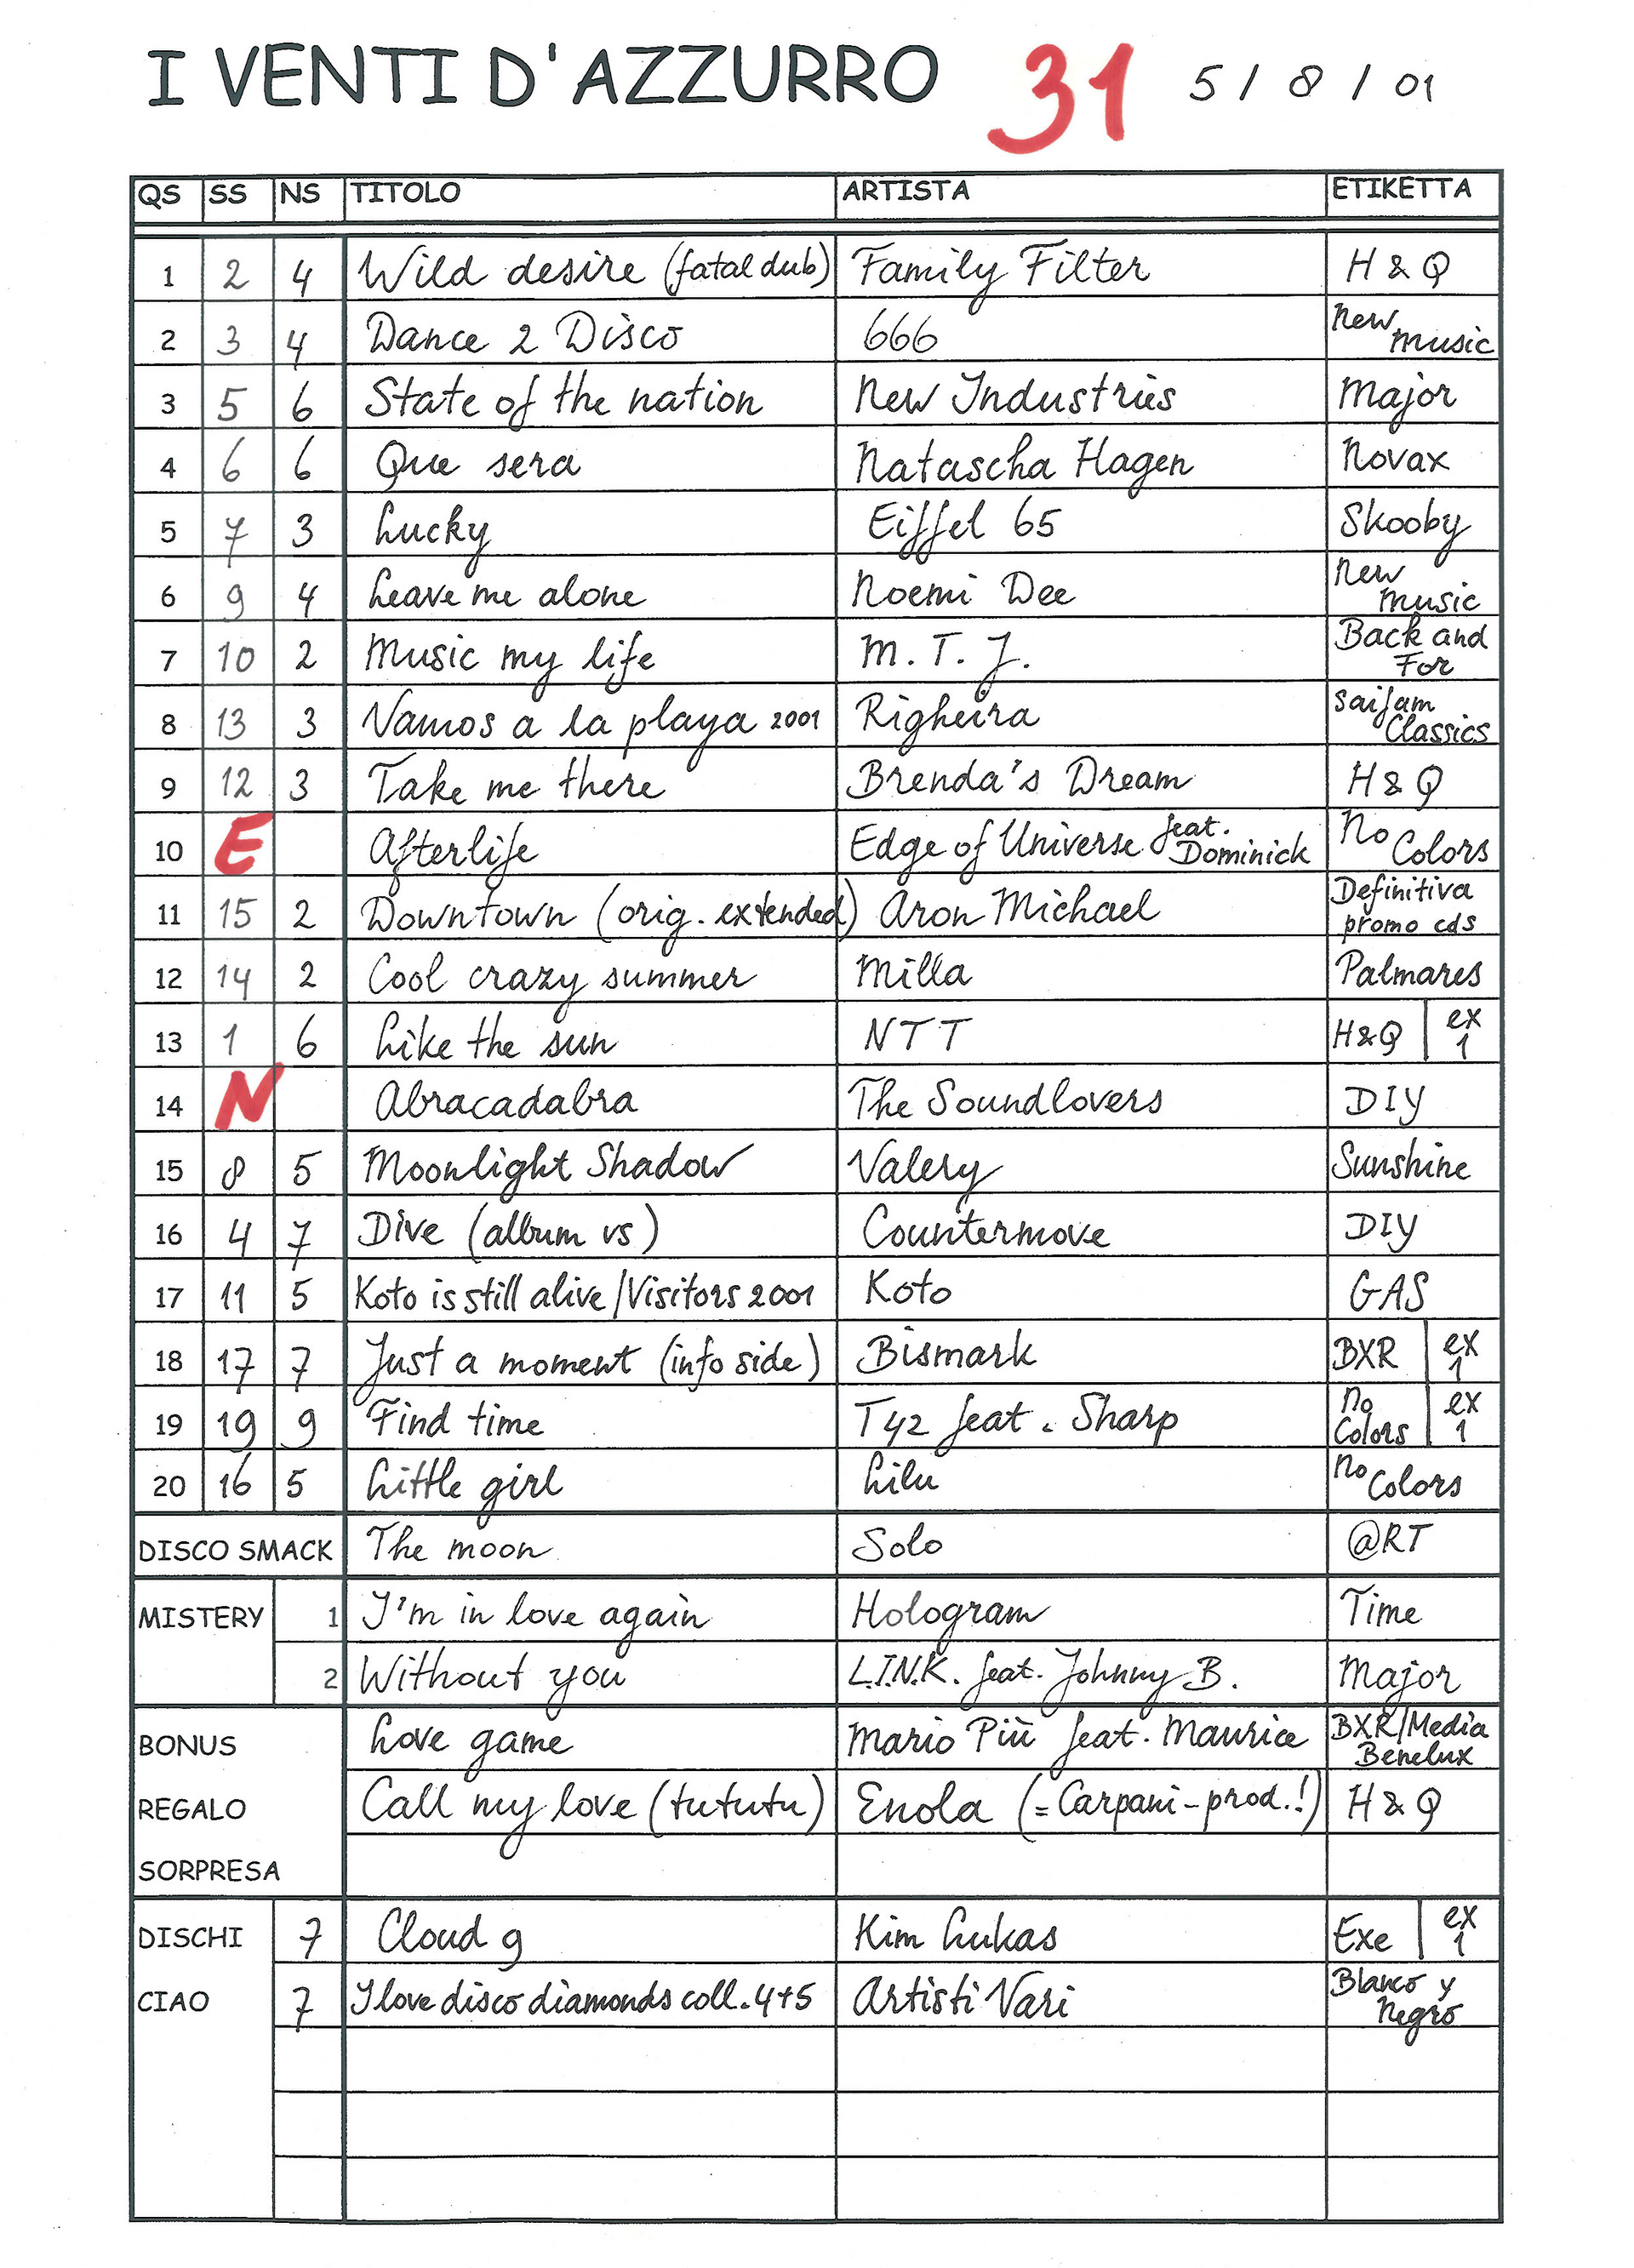 I VENTI D'AZZURRO 31 5 / 8 / 01
QS SS NS TITOLO ARTISTA ETIKETTA
1 2 4 Wild desire (fatal dub) Family Filter H & Q
2 3 4 Dance 2 Disco 666 New Music
3 5 6 State of the nation New Industries Major
4 6 6 Que sera Natascha Hagen Novax
5 7 3 Lucky Eiffel 65 Skooby
6 9 4 Leave me alone Noemi Dee New Music
7 10 2 Music my life M. T. J. Back and For
8 13 3 Vamos a la playa 2001 Righeira Saifam Classics
9 12 3 Take me there Brenda's Dream H & Q
10 E Afterlife Edge of Universe feat. Dominick No Colors
11 15 2 Downtown (orig. extended) Aron Michael Definitiva promo cds
12 14 2 Cool crazy summer Milla Palmares
13 1 6 Like the sun NTT H&Q ex 1
14 N Abracadabra The Soundlovers DIY
15 8 5 Moonlight Shadow Valery Sunshine
16 4 7 Dive (album vs) Countermove DIY
17 11 5 Koto is still alive/Visitors 2001 Koto GAS
18 17 7 Just a moment (info side) Bismark BXR ex 1
19 19 9 Find time T42 feat. Sharp No Colors ex 1
20 16 5 Little girl Lilu No Colors
DISCO SMACK The moon Solo @RT
MISTERY 1 I'm in love again Hologram Time
2 Without you L.I.N.K. feat. Johnny B. Major
BONUS Love game Mario Più feat. Maurice BXR/Media Benelux
REGALO Call my love (tututu) Enola (=Carpani-prod.!) H & Q
SORPRESA
DISCHI 7 Cloud 9 Kim Lukas Exe ex 1
CIAO 7 I love disco diamonds coll. 4+5 Artisti Vari Blanco y Negro